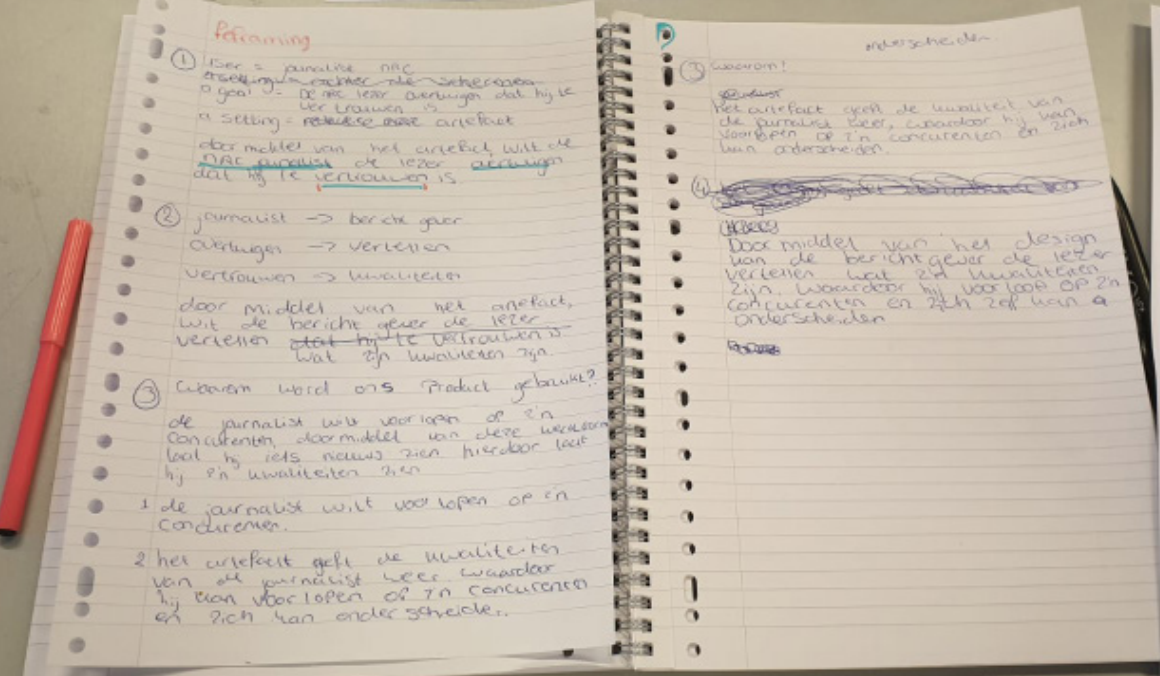 Reframing
① User = journalist NRC
a goal = De NRC lezer overtuigen dat hij te
vertrouwen is
a setting = artefact
door middel van het artefact, wilt de
NRC journalist de lezer overtuigen
dat hij te vertrouwen is.
② journalist -> bericht gever
overtuigen -> vertellen
vertrouwen -> kwaliteiten
door middel van het artefact,
wilt de bericht gever de lezer
vertellen dat hij te vertrouwen is
wat z'n kwaliteiten zijn.
③ Waarom word ons Product gebruikt?
de journalist wilt voorlopen op z'n
concurenten, doormiddel van deze
laat hij iets nieuws zien hierdoor laat
hij z'n kwaliteiten zien
1 de journalist wilt voorlopen op z'n
concurenten.
2 het artefact geft de kwaliteiten
van de journalist weer waardoor
hij kan voorlopen op z'n concurenten
en zich kan onderscheiden.
onderscheiden.
③ waarom?
Het artefact geeft de kwaliteit van
de journalist weer, waardoor hij kan
voorlopen op z'n concurenten en zich
kan onderscheiden.
④
Door middel van het design
kan de bericht gever de lezer
vertellen wat z'n kwaliteiten
zijn. waardoor hij voorloop op z'n
concurenten en zich zelf kan
onderscheiden